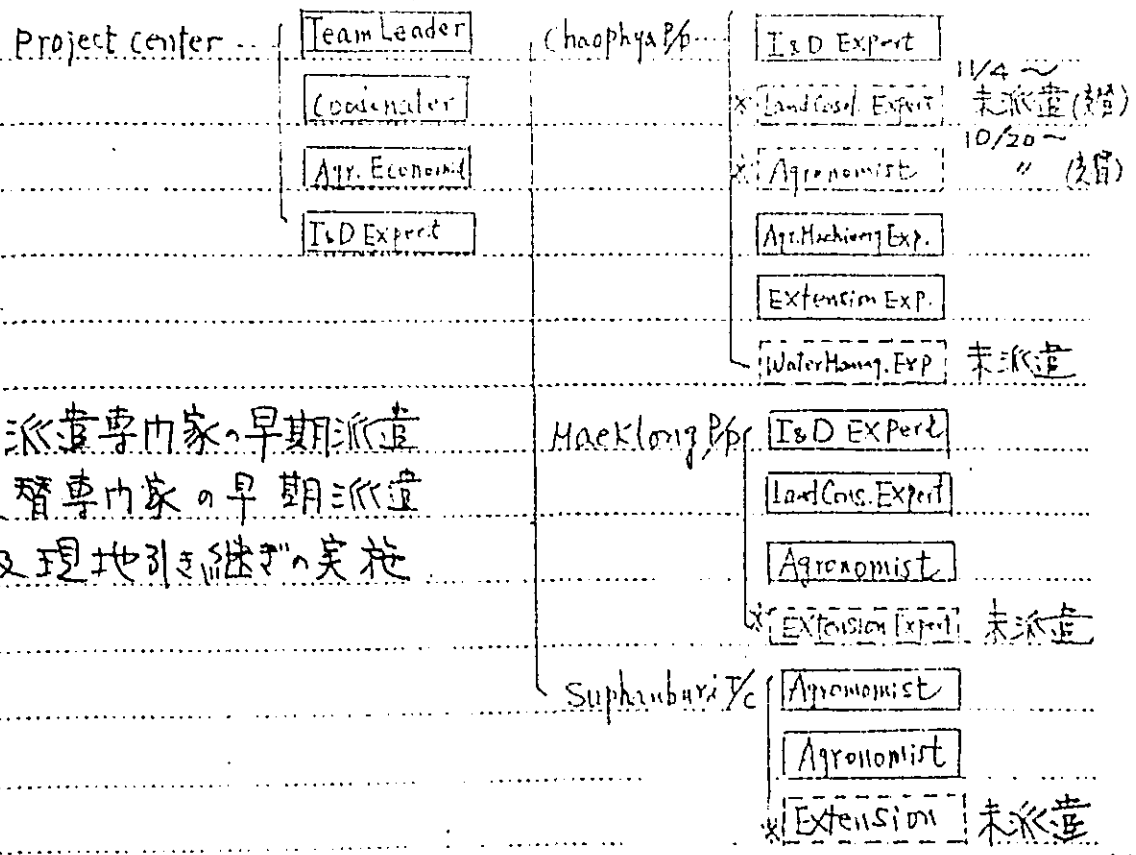 Project Center
Team Leader
Coodinater
Agr. Economist
I&D Expert
Chaophya P/p
I&D Expert
Land Cosol. Expert 11/4~ 未派遣(交替)
Agronomist 10/20~ 〃 (交替)
Agr. Machinery Exp.
Extension Exp.
Water Manag. Exp 未派遣
派遣専門家の早期派遣
替専門家の早期派遣
及現地引き継ぎの実施
Maeklong P/p
I&D Expert
Land Cons. Expert
Agronomist
Extension Expert 未派遣
Suphanburi T/C
Agronomist
Agronomist
Extension 未派遣